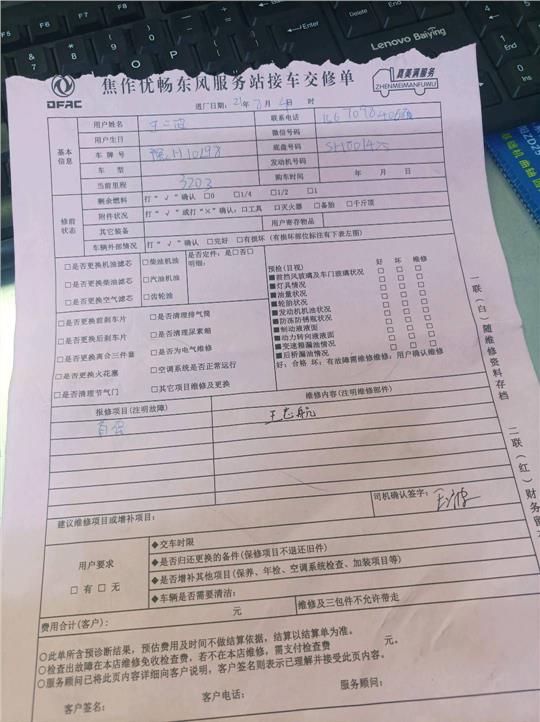 Lenovo Baiying
DFAC
焦作优畅东风服务站接车交修单
真美满服务
ZHENMEIMANFUWU
进厂日期: 21年 月 日 时
基本信息
用户姓名
联系电话
用户生日
微信号码
车牌号 豫H10198
底盘号码 SH001425
车型
发动机号
当前里程 3203
购车时间 年 月 日
修前状态
剩余燃料 打“√”确认 □0 □1/4 □1/2 □1
附件状况 打“√”或打“×”确认: □工具 □灭火器 □备胎 □千斤顶
其它装备 用户寄存物品
车辆外部情况 打“√”确认 □完好 □有损坏 (有损坏部位标注有下表左图)
□是否更换机油滤芯 □柴油机油 是否定件: 是□否□
明细:
□是否更换柴油滤芯 □汽油机油
□是否更换空气滤芯 □齿轮油
□是否更换前刹车片 □是否清理排气筒
□是否更换后刹车片 □是否清理尿素箱
□是否更换离合三件套 □是否为电气维修
□是否更换火花塞 □空调系统是否正常运行
□是否清理节气门 □其它项目维修及更换
预检(目视) 好 坏 维修
■前挡风玻璃及车门玻璃状况 □ □ □
■灯具情况 □ □ □
■油量状况 □ □ □
■轮胎状况 □ □ □
■发动机机油状况 □ □ □
■防冻防锈瓶状况 □ □ □
■制动液液面 □ □ □
■动力转向液液面 □ □ □
■变速箱漏油情况 □ □ □
■后桥漏油情况 □ □ □
好: 合格 坏: 有故障需维修维修: 用户确认维修
报修项目(注明故障)
维修内容(注明维修部件)
首保
王志航
司机确认签字:
建议维修项目或增补项目:
用户要求
□ 有 □ 无
◆交车时限
◆是否归还更换的备件(保修项目不退还旧件)
◆是否增补其他项目(保养、年检、空调系统检查、加装项目等)
◆车辆是否需要清洁:
费用合计(客户): 元
维修及三包件不允许带走
○此单所含预诊断结果, 预估费用及时间不做结算依据, 结算以结算单为准。
○检查出故障在本店维修免收检查费, 若不在本店维修, 需支付检查费 元。
○服务顾问已将此页内容详细向客户说明, 客户签名则表示已理解并接受此页内容。
客户签名: 客户电话: 服务顾问:
一联(白)随维修资料存档
二联(红)财务